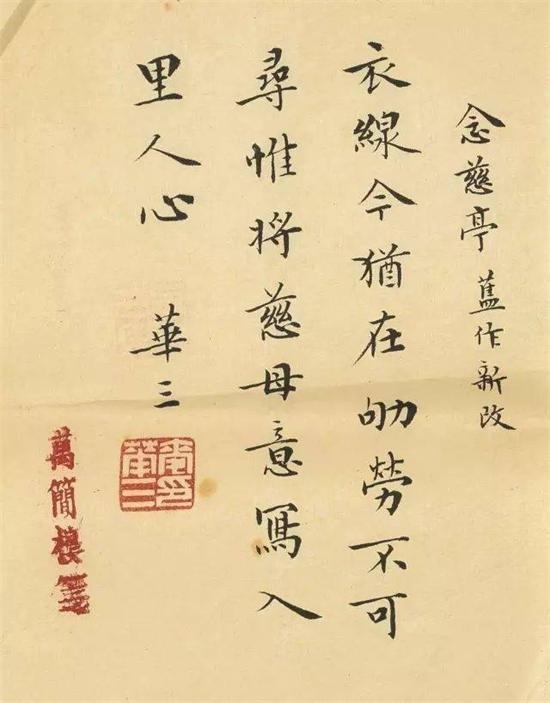 念慈亭 蓝作新改
衣線今猶在劬勞不可
尋惟將慈母意寫入
里人心 華三
萬簡樓箋